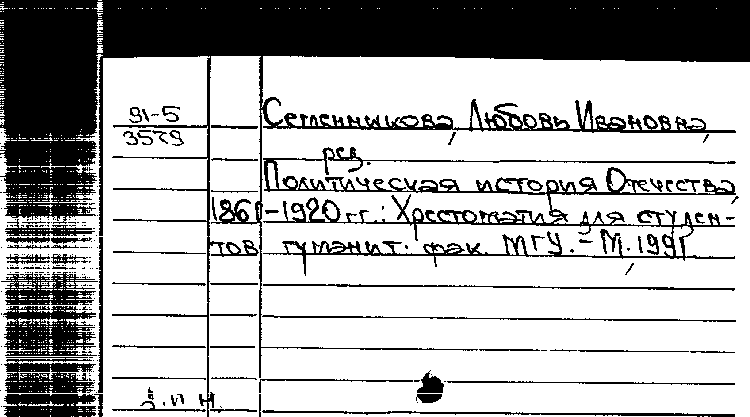 91-5
3579
Семенникова, Любовь Ивановна,
рец.
Политическая история Отечества,
1861-1920 гг.: Хрестоматия для студен-
тов гуманит. фак. МГУ. - М, 1991